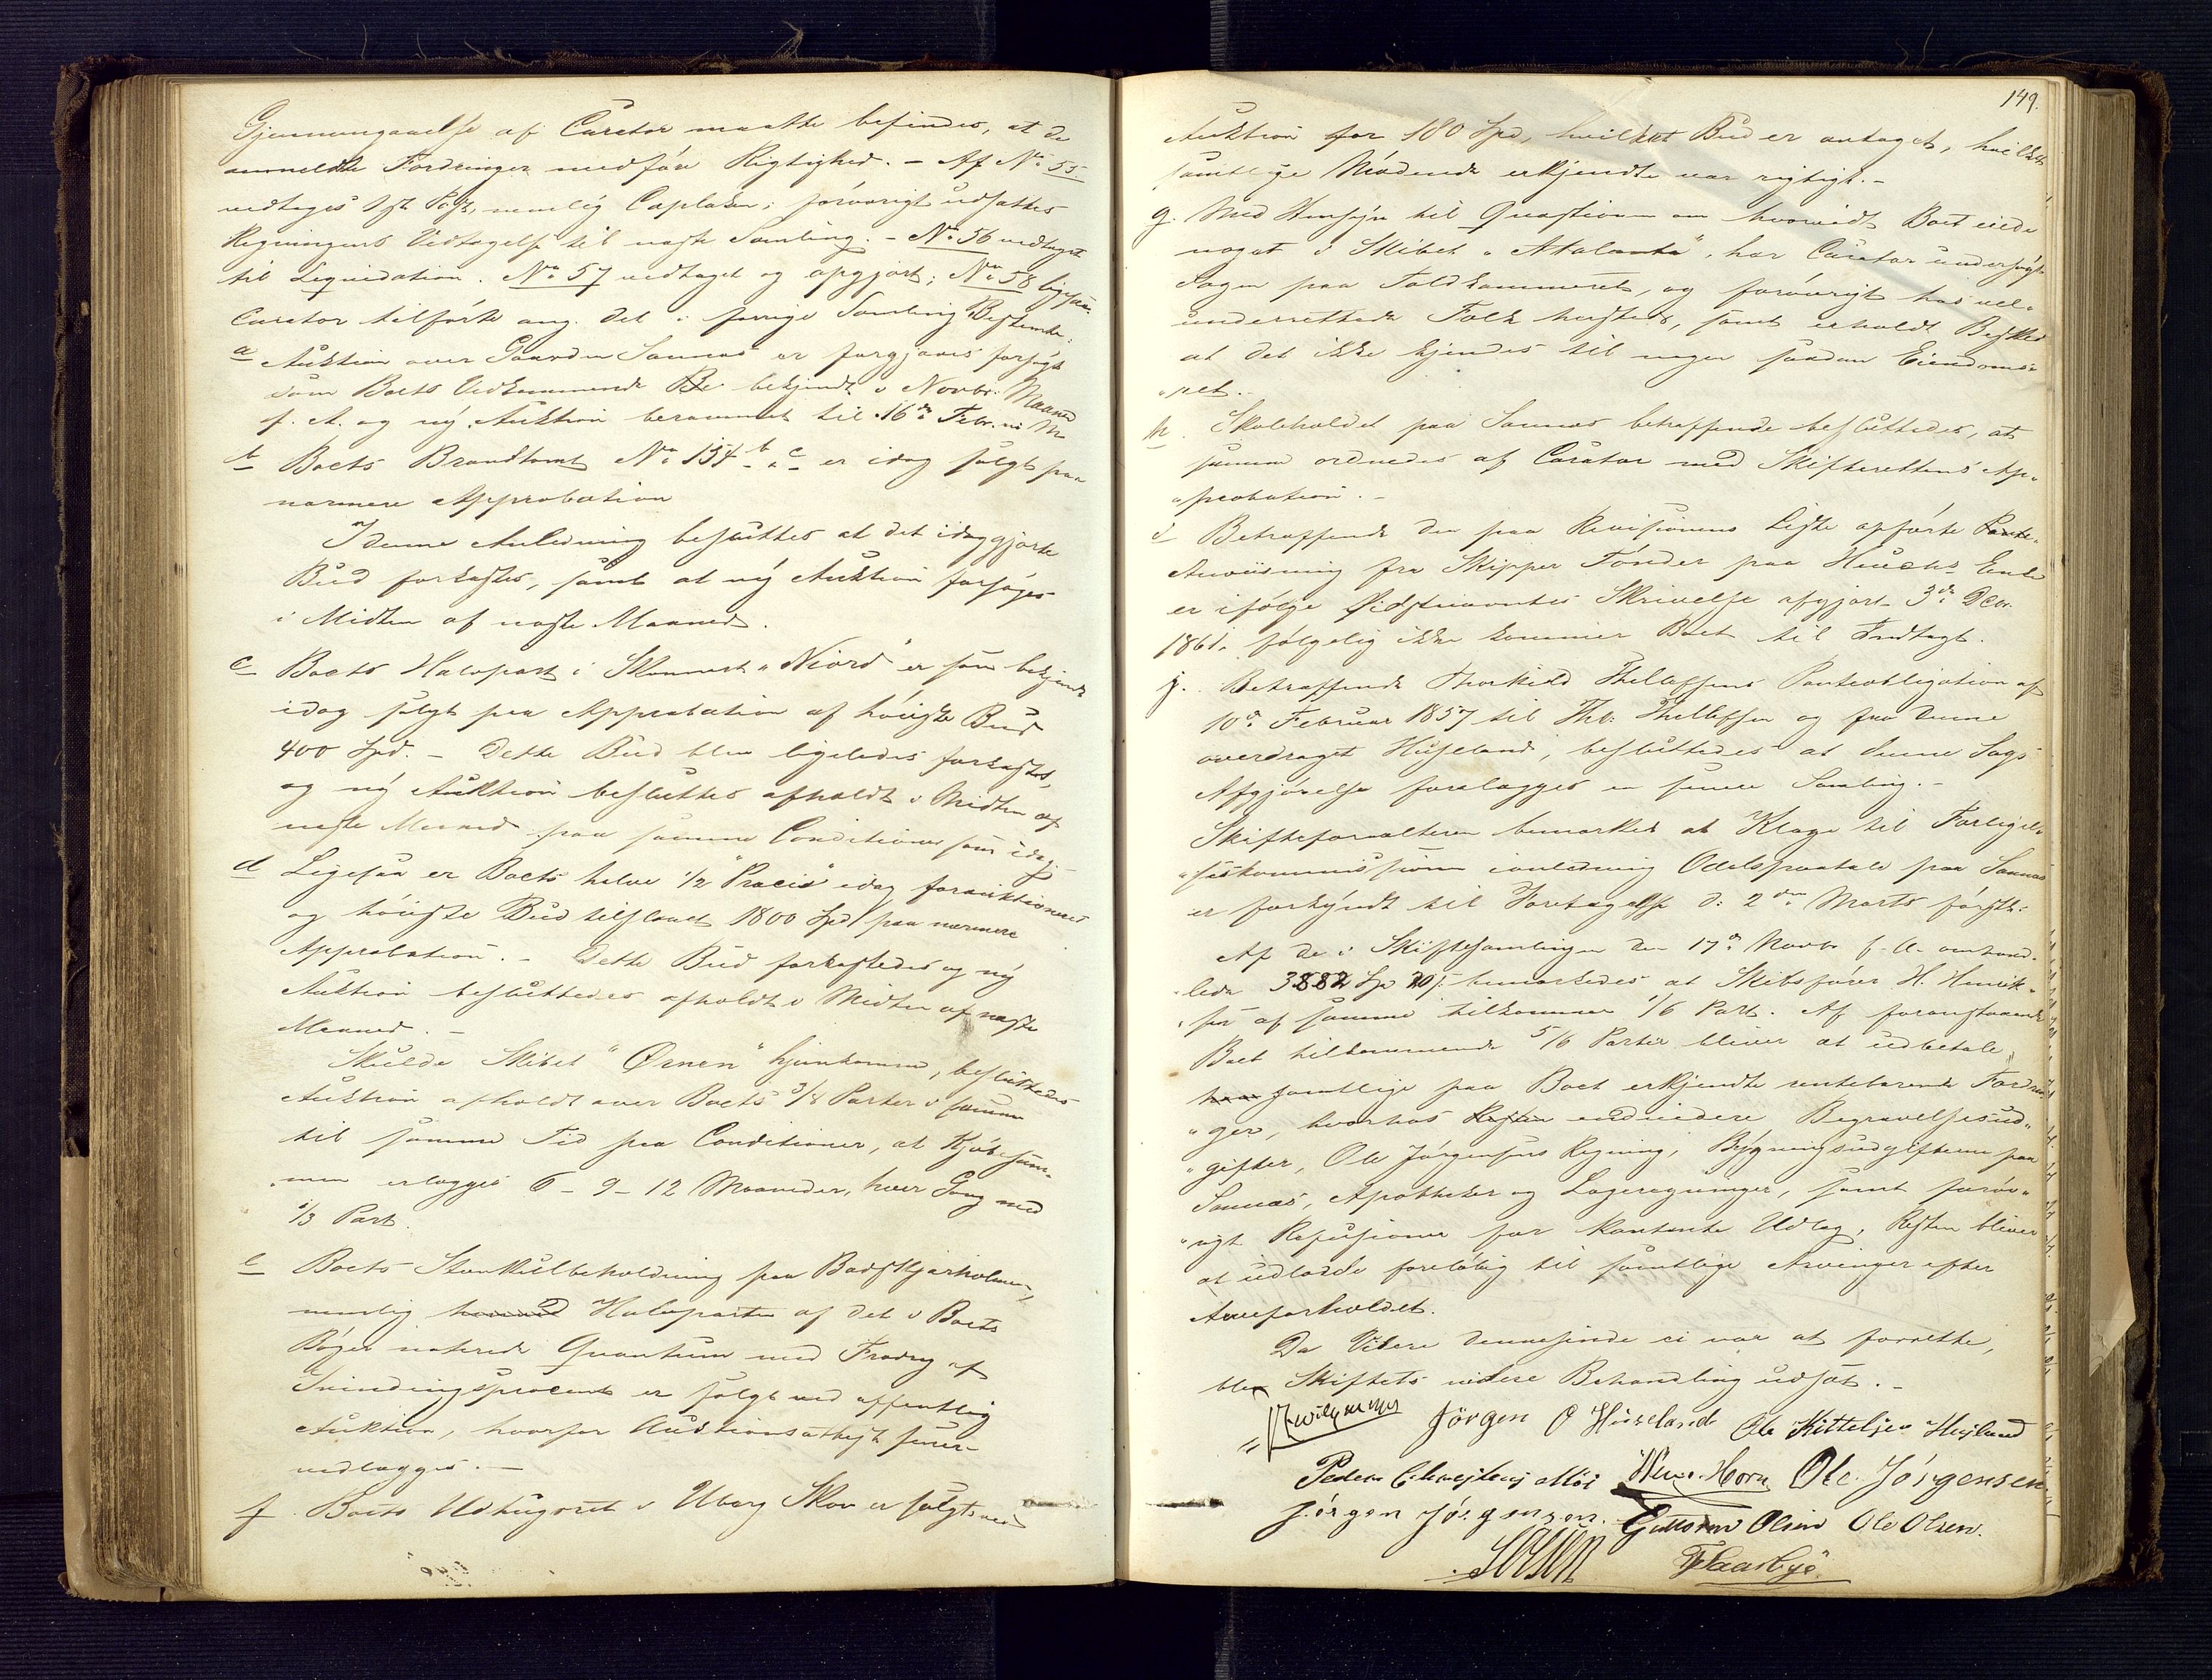 Gjennemgaaelse af Curator maatte befindes, at de
anmeldte Fordringer medføre Rigtighed. - Af No 55
vedtages 1ste Post, nemlig Caplaken; forøvrigt udsattes
Regningens Vedtagelse til næste Samling. - No 56 vedtaget
til Liqvidation. No 57 vedtaget og opgjort; No 58 ligesaa.
Curator tilførte ang. det i forrige Samling Bestemte:
a Auktion over Gaarden Sannæs er forgjæves forsøgt
som Boets Vedkommende Be bekjendt i Novbr. Maaned
f. A. og ny Auktion berammet til 16de Febr.
b Boets Brandtomt No 134 b & c er idag solgt paa
nærmere Approbation
I denne Anledning besluttes at det idag gjorte
Bud forkastes, samt at ny Auktion forsøges
i Midten af næste Maaned.
c Boets Halvpart i Skonnert "Niord" er som bekjendt
idag solgt paa Approbation af høieste Bud
400 Spd. - Dette Bud blev ligeledes forkastet,
og ny Auktion besluttes afholdt i Midten af
næste Maaned paa samme Conditioner som idag.
d Ligesaa er Boets halve 1/2 "Præcis" idag forauktioneret
og høieste Bud tilslaaet 1800 Spd paa nærmere
Approbation. - Dette Bud forkastedes og ny
Auktion besluttedes afholdt i Midten af næste
Maaned. -
Skulde Skibet "Ørnen" hjemkomme, besluttedes
Auktion afholdt over Boets 3/8 Parter i samme
til samme Tid paa Conditioner, at Kjøbesum-
men erlægges 6 - 9 - 12 Maaneder, hver Gang med
1/3 Part.
e Boets Steenkulbeholdning paa Badskjærholmen,
nemlig Halvparten af det i Boets
Bøger noterede Qvantum med Fradrag af
Svindingsprocent er solgt ved offentlig
Auktion, hvorfor Auktionsattest
vedlægges. -
f Boets Udhugsret i Uberg Skov er solgt ved
149.
Auktion for 180 Spd, hvilket Bud er antaget, hvilket
samtlige Mødende erkjendte var rigtigt. -
g. Med Hensyn til Qvæstionen om hvorvidt Boet eiede
noget i Skibet "Atalanta", har Curator undersøgt
Sagen paa Toldkammeret, og forøvrigt hos vel-
underrettede Folk hersteds, samt erholdt Besked
at det ikke kjendes til nogen saadan Eiendoms-
ret. -
h. Skoleholdet paa Sannæs betræffende besluttedes, at
samme ordnedes af Curator med Skifterettens Ap-
probation. -
i Betræffende den paa Revisionens Liste opførte Pante-
Anviisning fra Skipper Tønder paa Enke
er ifølge Skrivelse afgjort 3de Decbr.
1861. følgelig ikke kommer Boet til Indtægt.
j. Betræffende Thorkild Thellefsens Panteobligation af
10de Februar 1857 til Ths. Thellefsen og fra denne
overdraget Huseland, besluttedes at denne Sags
Afgjørelse forelægges en senere Samling. -
Skifteforvalteren bemærket at Klage til Forligel-
seskommissionen ianledning Odelspaatale paa Sannæs
er forkyndt til Foretagelse d: 2den Marts førstk:
Af de i Skiftesamlingen den 17de Novbr f. A. omhand-
lede 3882 Spd bemærkedes at Skibsfører H. Henrik-
sen af samme tilkommer 1/6 Part. Af foranstaaende
Boet tilkommende 5/6 Parter bliver at udbetale
samtlige paa Boet erkjendte rentebærende Fordrin-
ger, hvorhos endvidere Begravelsesud-
gifter, Ole Jørgensens Regning, Bygningsudgifterne paa
Sannæs, Apotheker og Lægeregninger, samt forøv-
rigt Refusioner for kontante Udlæg, Resten bliver
at udlodde foreløbig til samtlige Arvinger efter
Arveforholdet.
Da Videre dennesinde ei var at forrette,
blev Skiftets videre Behandling udsat. -
Jörgen O Huseland Ole Kittelsen Huseland
Peder Horn Ole. Jørgensen
Jörgen Jörgensen. Guttorm Olsen Ole Olsen.
SOlsen